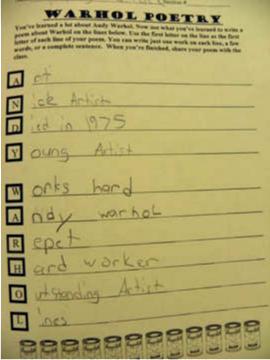 WARHOL POETRY
You've learned a lot about Andy Warhol. Now use what you've learned to write a
poem about Warhol on the lines below. Use the first letter on the line as the first
letter of each line of your poem. You can write just one work on each line, a few
words, or a complete sentence. When you're finished, share your poem with the
class.
Art
Nick Artist
Died in 1975
Young Artist
Works hard
Andy warhol
Repet
Hard worker
Outstanding Artist
Lines